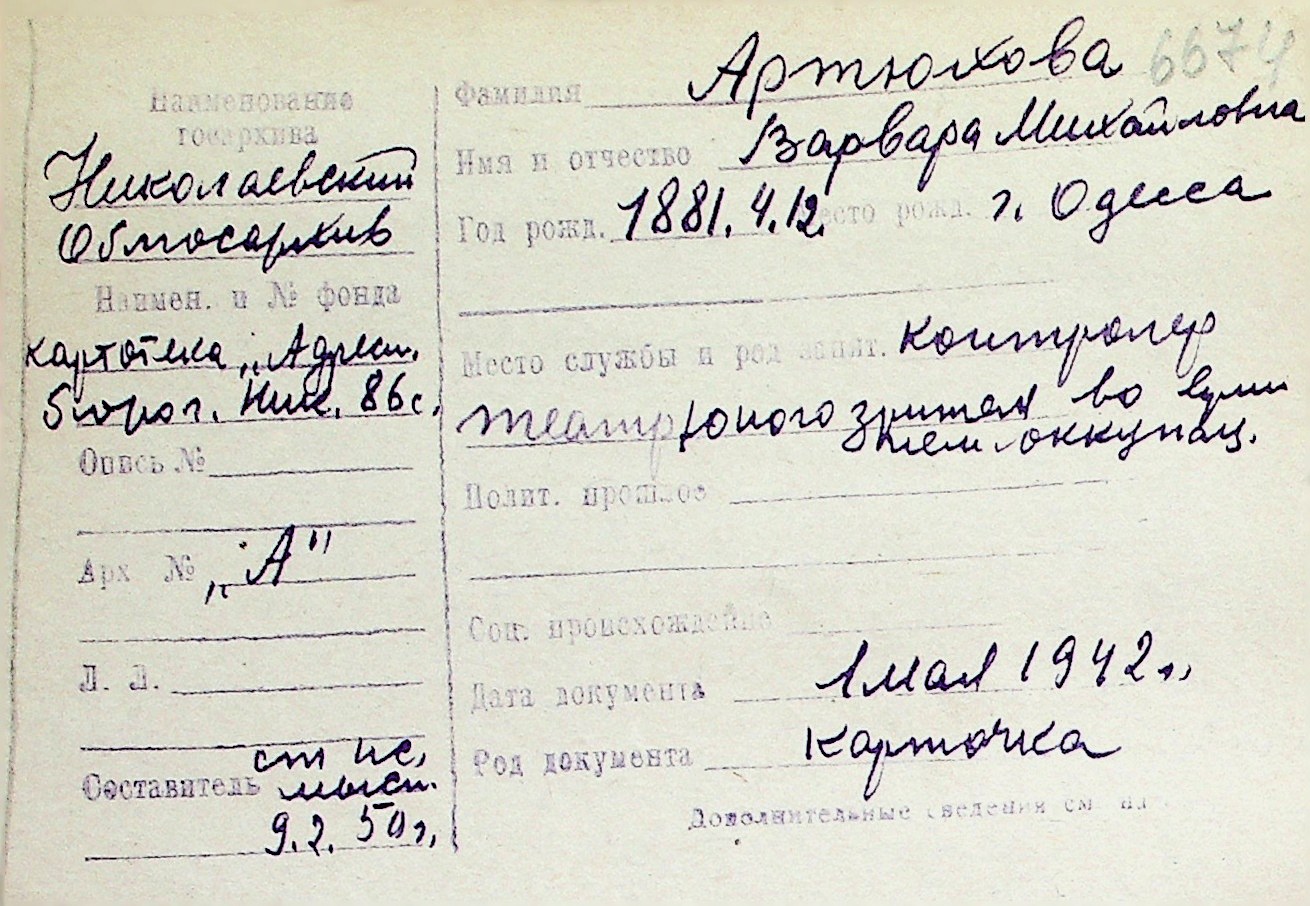 Наименование
госархива
Николаевский
Облгосархив
Наимен. и № фонда
картотека „Адресн.
бюро г. Ник. 86 с.
Опись №
Арх №
„А"
Л. Л.
Составитель
ст
9.2.50 г,
6674
Фамилия Артюхова
Имя и отчество Варвара Михайловна
Год рожд. 1881.4.12. место рожд. г. Одесса
Место службы и род занят. контролер
театр юного зрителя во врем
нем. оккупац.
Полит. прошлое
Соц. происхождение
Дата документа 1 мая 1942 г,
Род документа карточка
Дополнительные сведения см